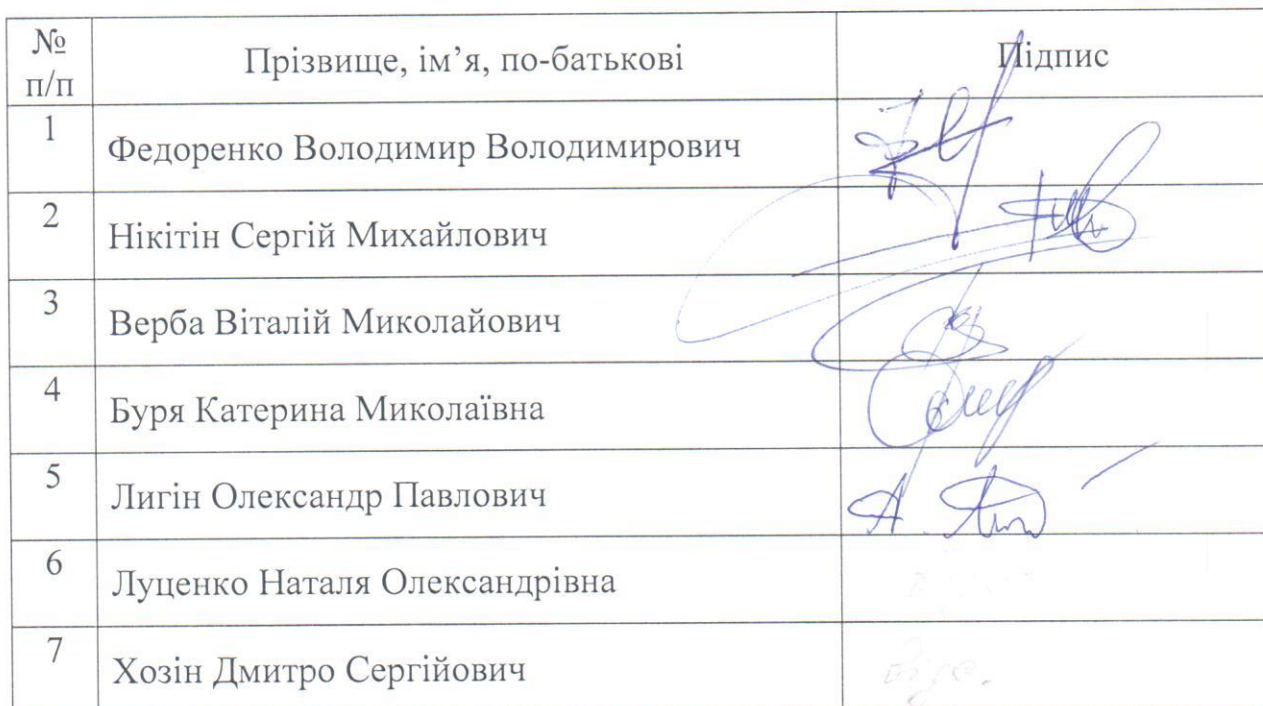 № п/п Прізвище, ім’я, по-батькові Підпис
1 Федоренко Володимир Володимирович
2 Нікітін Сергій Михайлович
3 Верба Віталій Миколайович
4 Буря Катерина Миколаївна
5 Лигін Олександр Павлович
6 Луценко Наталя Олександрівна
7 Хозін Дмитро Сергійович